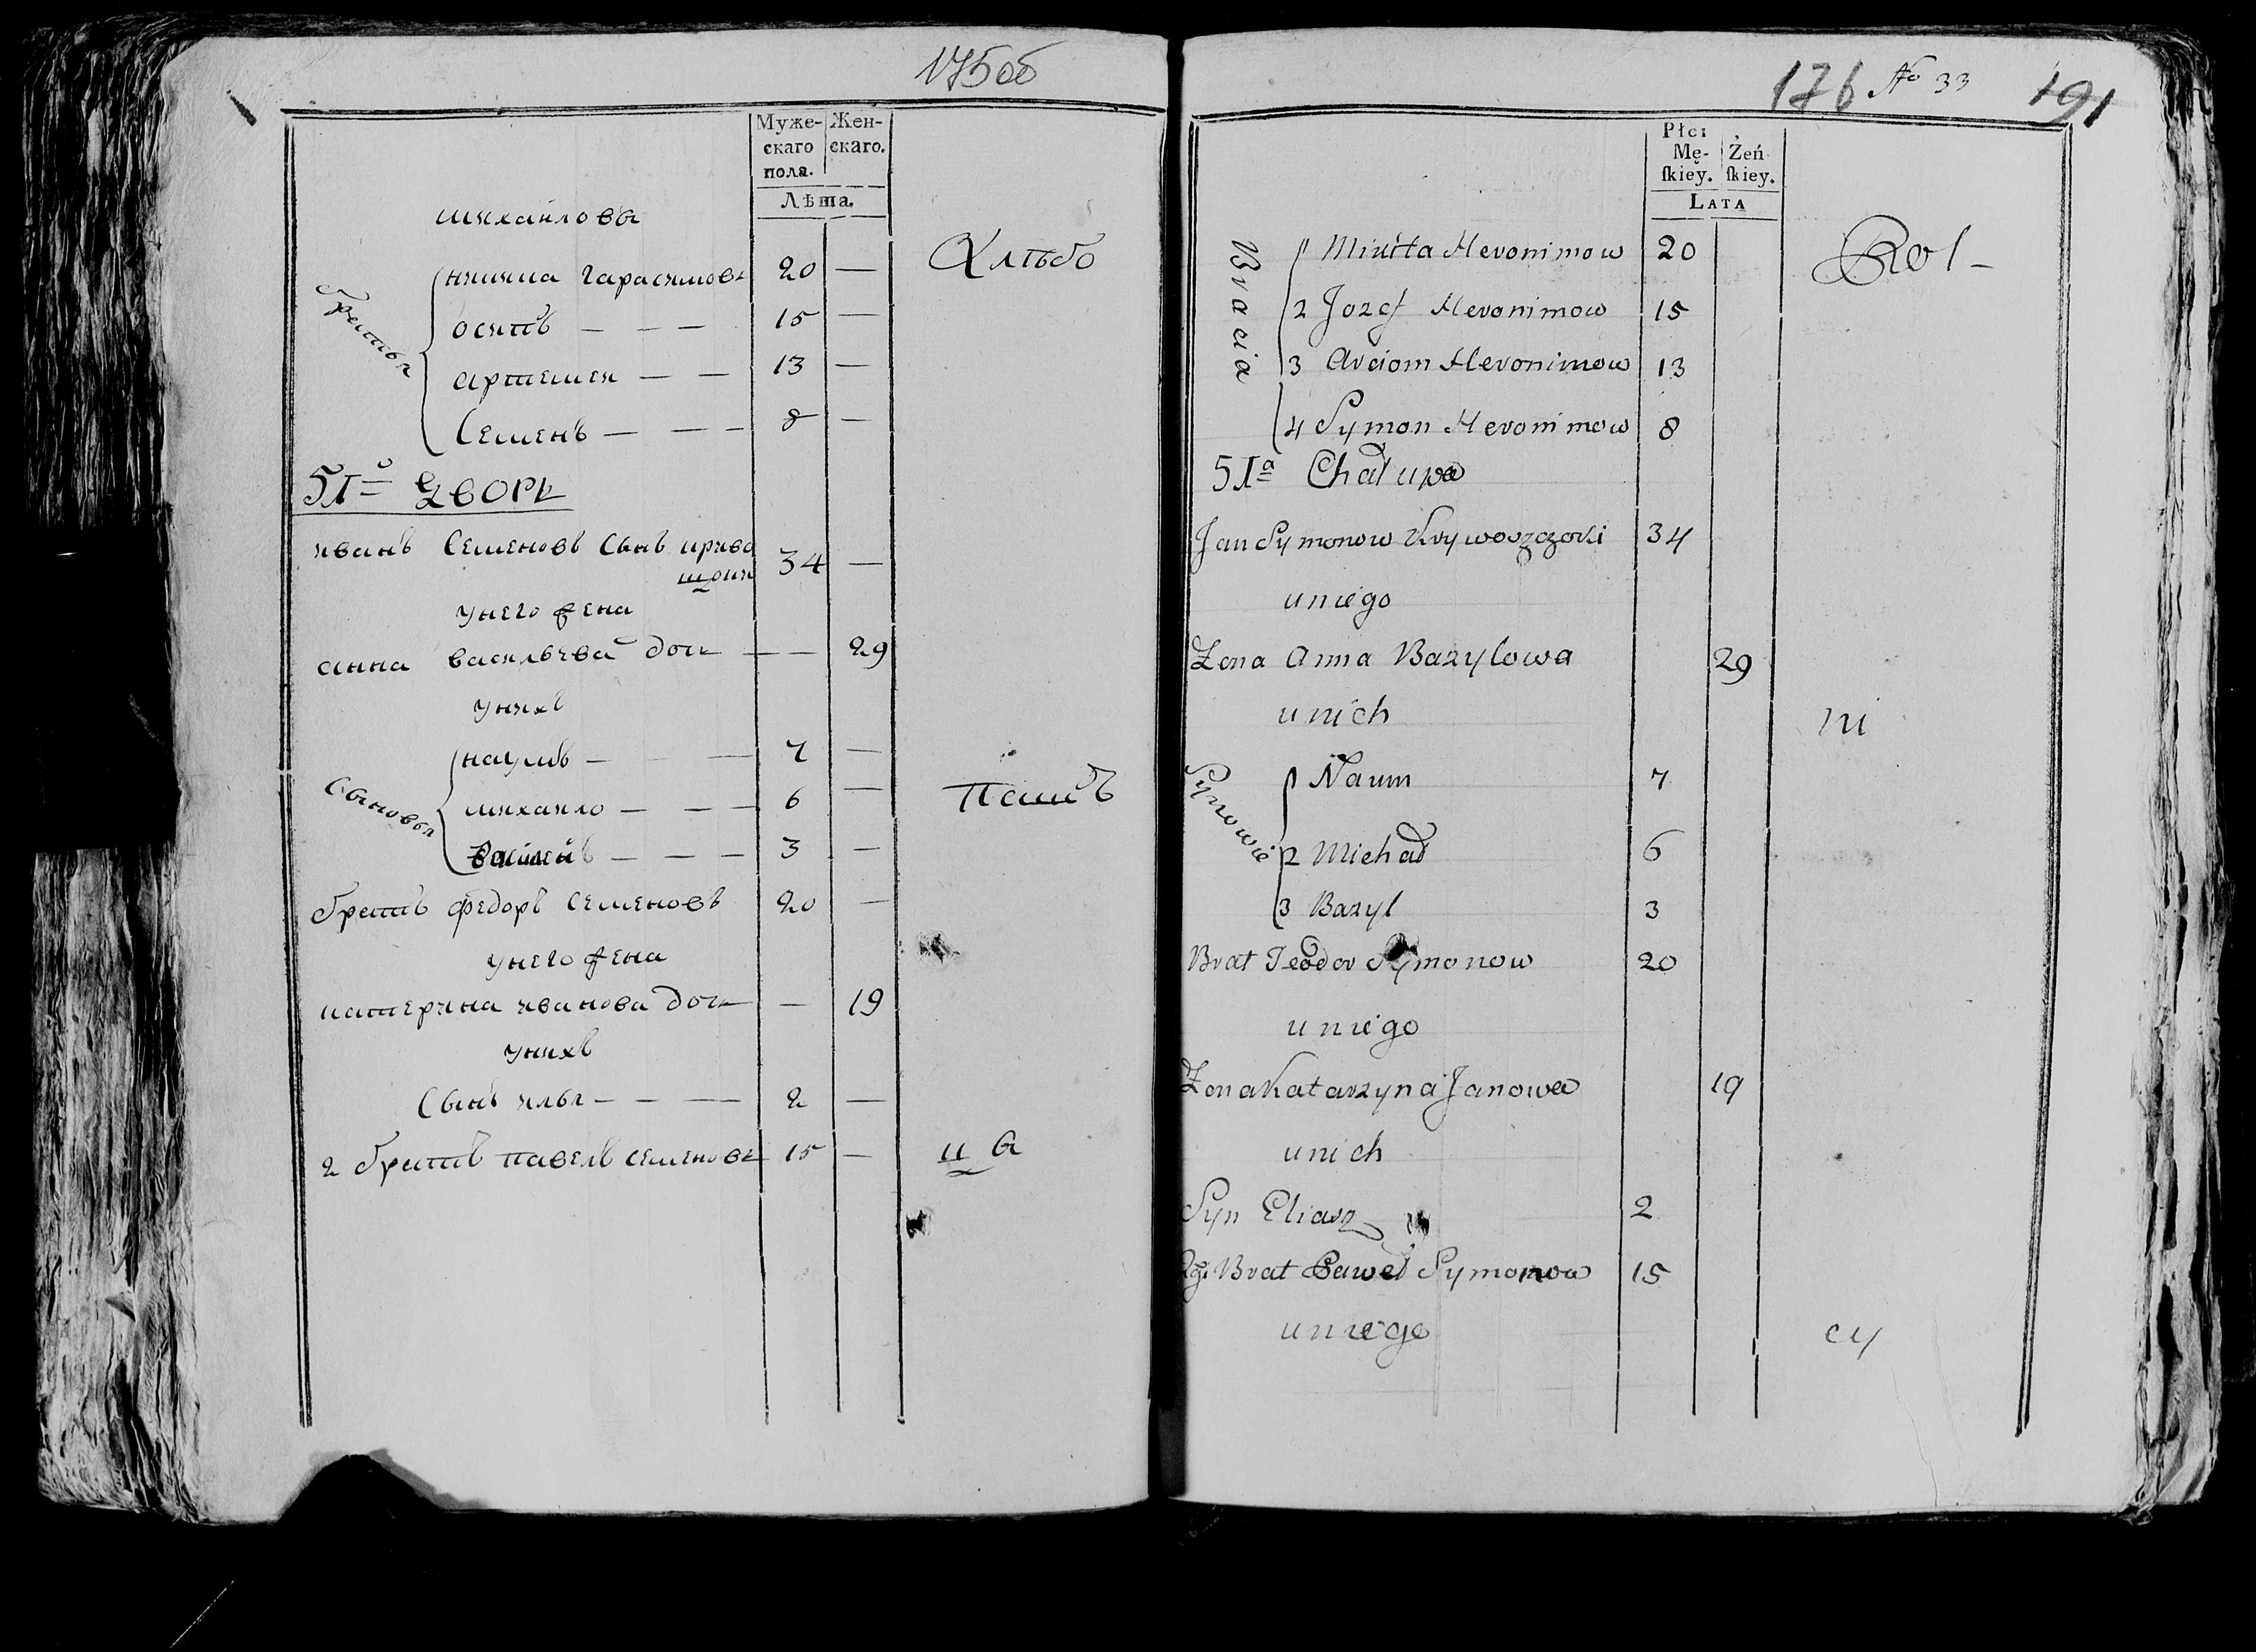 175об
Муже- Жен-
скаго скаго.
пола.
Лѣта.
михайловы
братья
никита гарасимовъ 20 —
осипъ — — — 15 —
артемей — — 13 —
Семенъ — — — 8 —
Хлѣбо
51й дворъ
иванъ Семеновъ Сынъ криво
щоки 34 —
унего жена
анна васильева дочь — — 29
унихъ
Сыновья
наумъ — — 7 —
михайло — — — 6 —
василей — — — 3 —
Пашъ
братъ федоръ Семеновъ 20 —
унего жена
катерина иванова дочь — 19
унихъ
Сынъ илья — — — 2 —
2 братъ павелъ семеновъ 15 —
цы
176 No 33 191
Płci
Mę- Żeń-
skiey. skiey.
LATA
Bracia
1 Mikita Heronimow 20
2 Jozef Heronimow 15
3 Arciom Heronimow 13
4 Symon Heronimow 8
Rol-
51a Chałupa
Jan Symonow Krywoszczoki 34
uniego
Zona Anna Bazylowa 29
unich
ni
Synowie
1 Naum 7
2 Michał 6
3 Bazyl 3
Brat Teodor Symonow 20
uniego
Zona Katarzyna Janowa 19
unich
Syn Eliasz 2
2gi Brat Paweł Symonow 15
uniego
cy